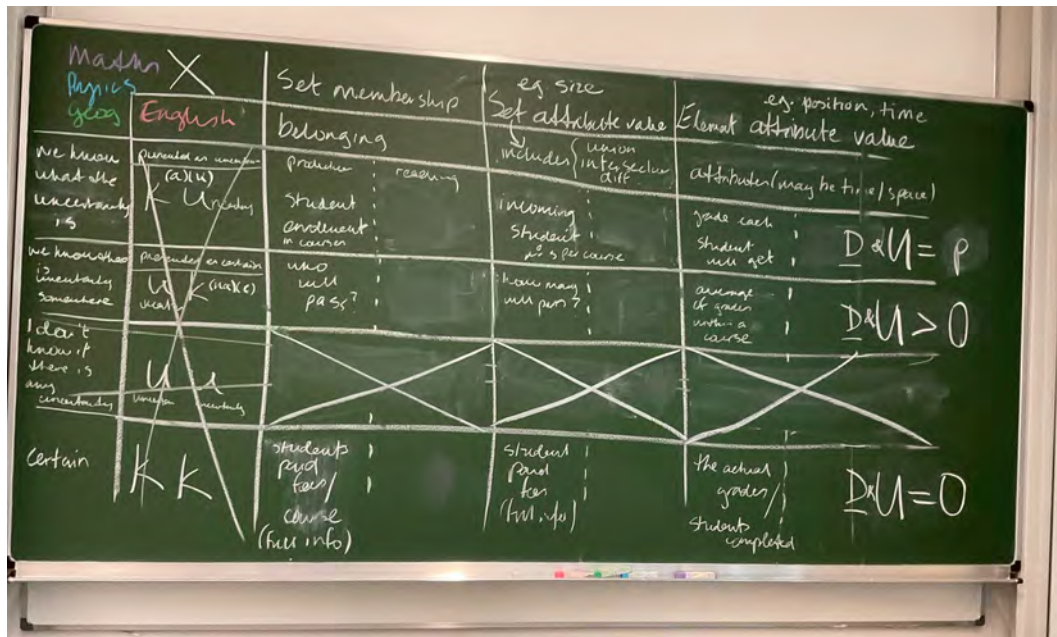 Maths
Physics
Geog
English
Set membership
eg size
Set attribute value
eg. position, time
Element attribute value
belonging
includes { union
intersection
diff.
attributes (may be time/space)
we know
what the
uncertainty
is
presented as uncertain
(a)(u)
K Uncertainty
production
reading
student
enrolment
in courses
incoming
student
no's per course
grade each
student
will get
D & U = P
we know there
is
uncertainty
somewhere
presented as certain
U K
who
will
pass?
how many
will pass?
average
of grades
within a
course
D & U > 0
I don't
know if
there is
any
uncertainty
U u
uncertainty
certain
K K
students
paid
fees/
course
(full info)
student
paid
fees
(full info)
the actual
grades/
students
completed
D & U = 0